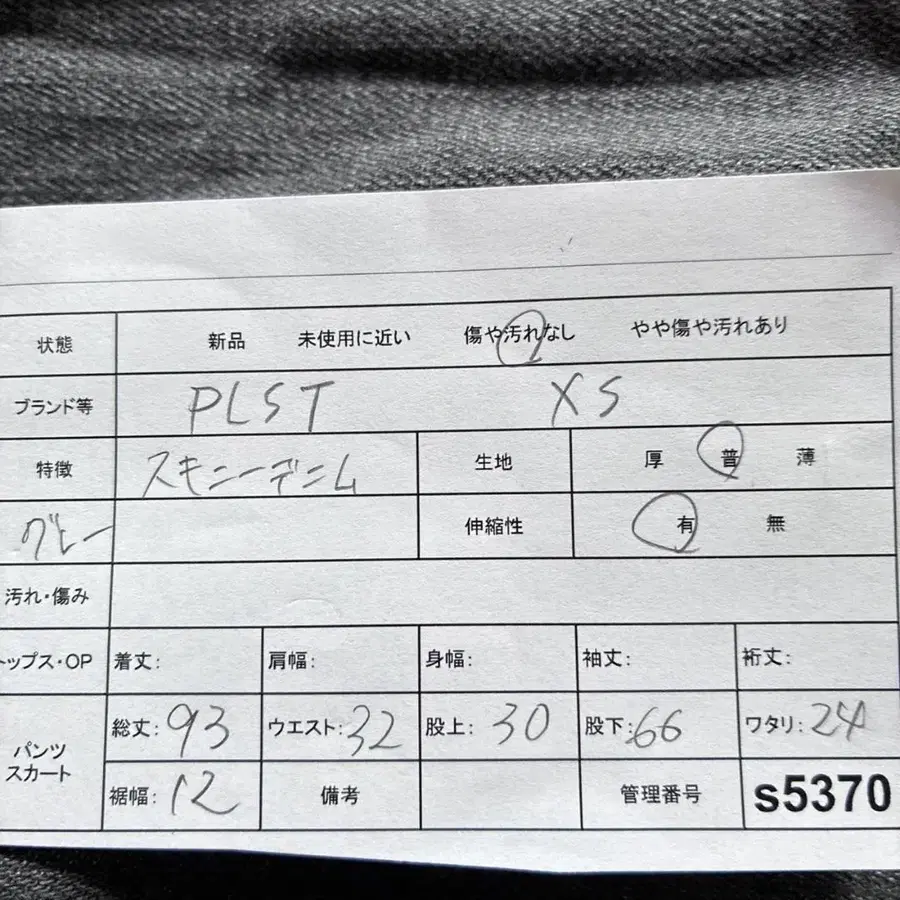 状態 新品 未使用に近い 傷や汚れなし やや傷や汚れあり
ブランド等 PLST XS
特徴 スキニーデニム 生地 厚 普 薄
グレー 伸縮性 有 無
汚れ・傷み
トップス・OP 着丈: 肩幅: 身幅: 袖丈: 裄丈:
パンツ スカート 総丈:93 ウエスト:32 股上:30 股下:66 ワタリ:24
裾幅:12 備考 管理番号 s5370